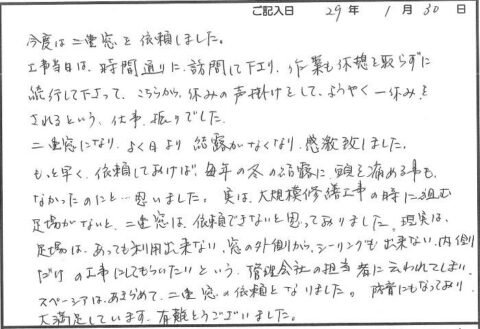 ご記入日 29年 1月30日
今度は二重窓を依頼しました。
工事当日は、時間通りに、訪問して下さり、作業も休憩を取らずに
続行して下さって、こちらから、休みの声掛けをして、ようやく一休みを
されるという、仕事振りでした。
二重窓になり、よく日より 結露がなくなり、感激致しました。
もっと早く、依頼しておけば、毎年の冬の結露に頭を痛める事も、
なかったのにと…思いました。実は、大規模修繕工事の時に組む
足場がないと、二重窓は、依頼できないと思っておりました。現実は、
足場は、あっても利用出来ない、窓の外側から、シーリングも出来ない、内側
だけの工事にしてもらいたいという、管理会社の担当者に云われてしまい、
スペーシアは、あきらめて、二重窓の依頼となりました。防音にもなっており、
大満足しています。有難とうございました。